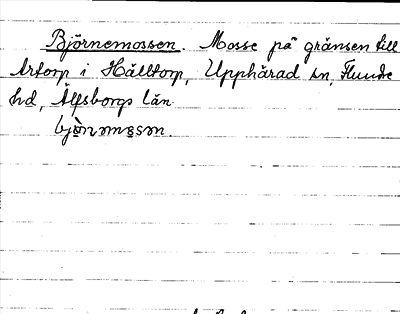 Björnemossen. Mosse på gränsen till
Artorp i Hålltorp, Upphärad sn, Flundre
hd, Älfsborgs län.
bjò̱nəmɷsən.